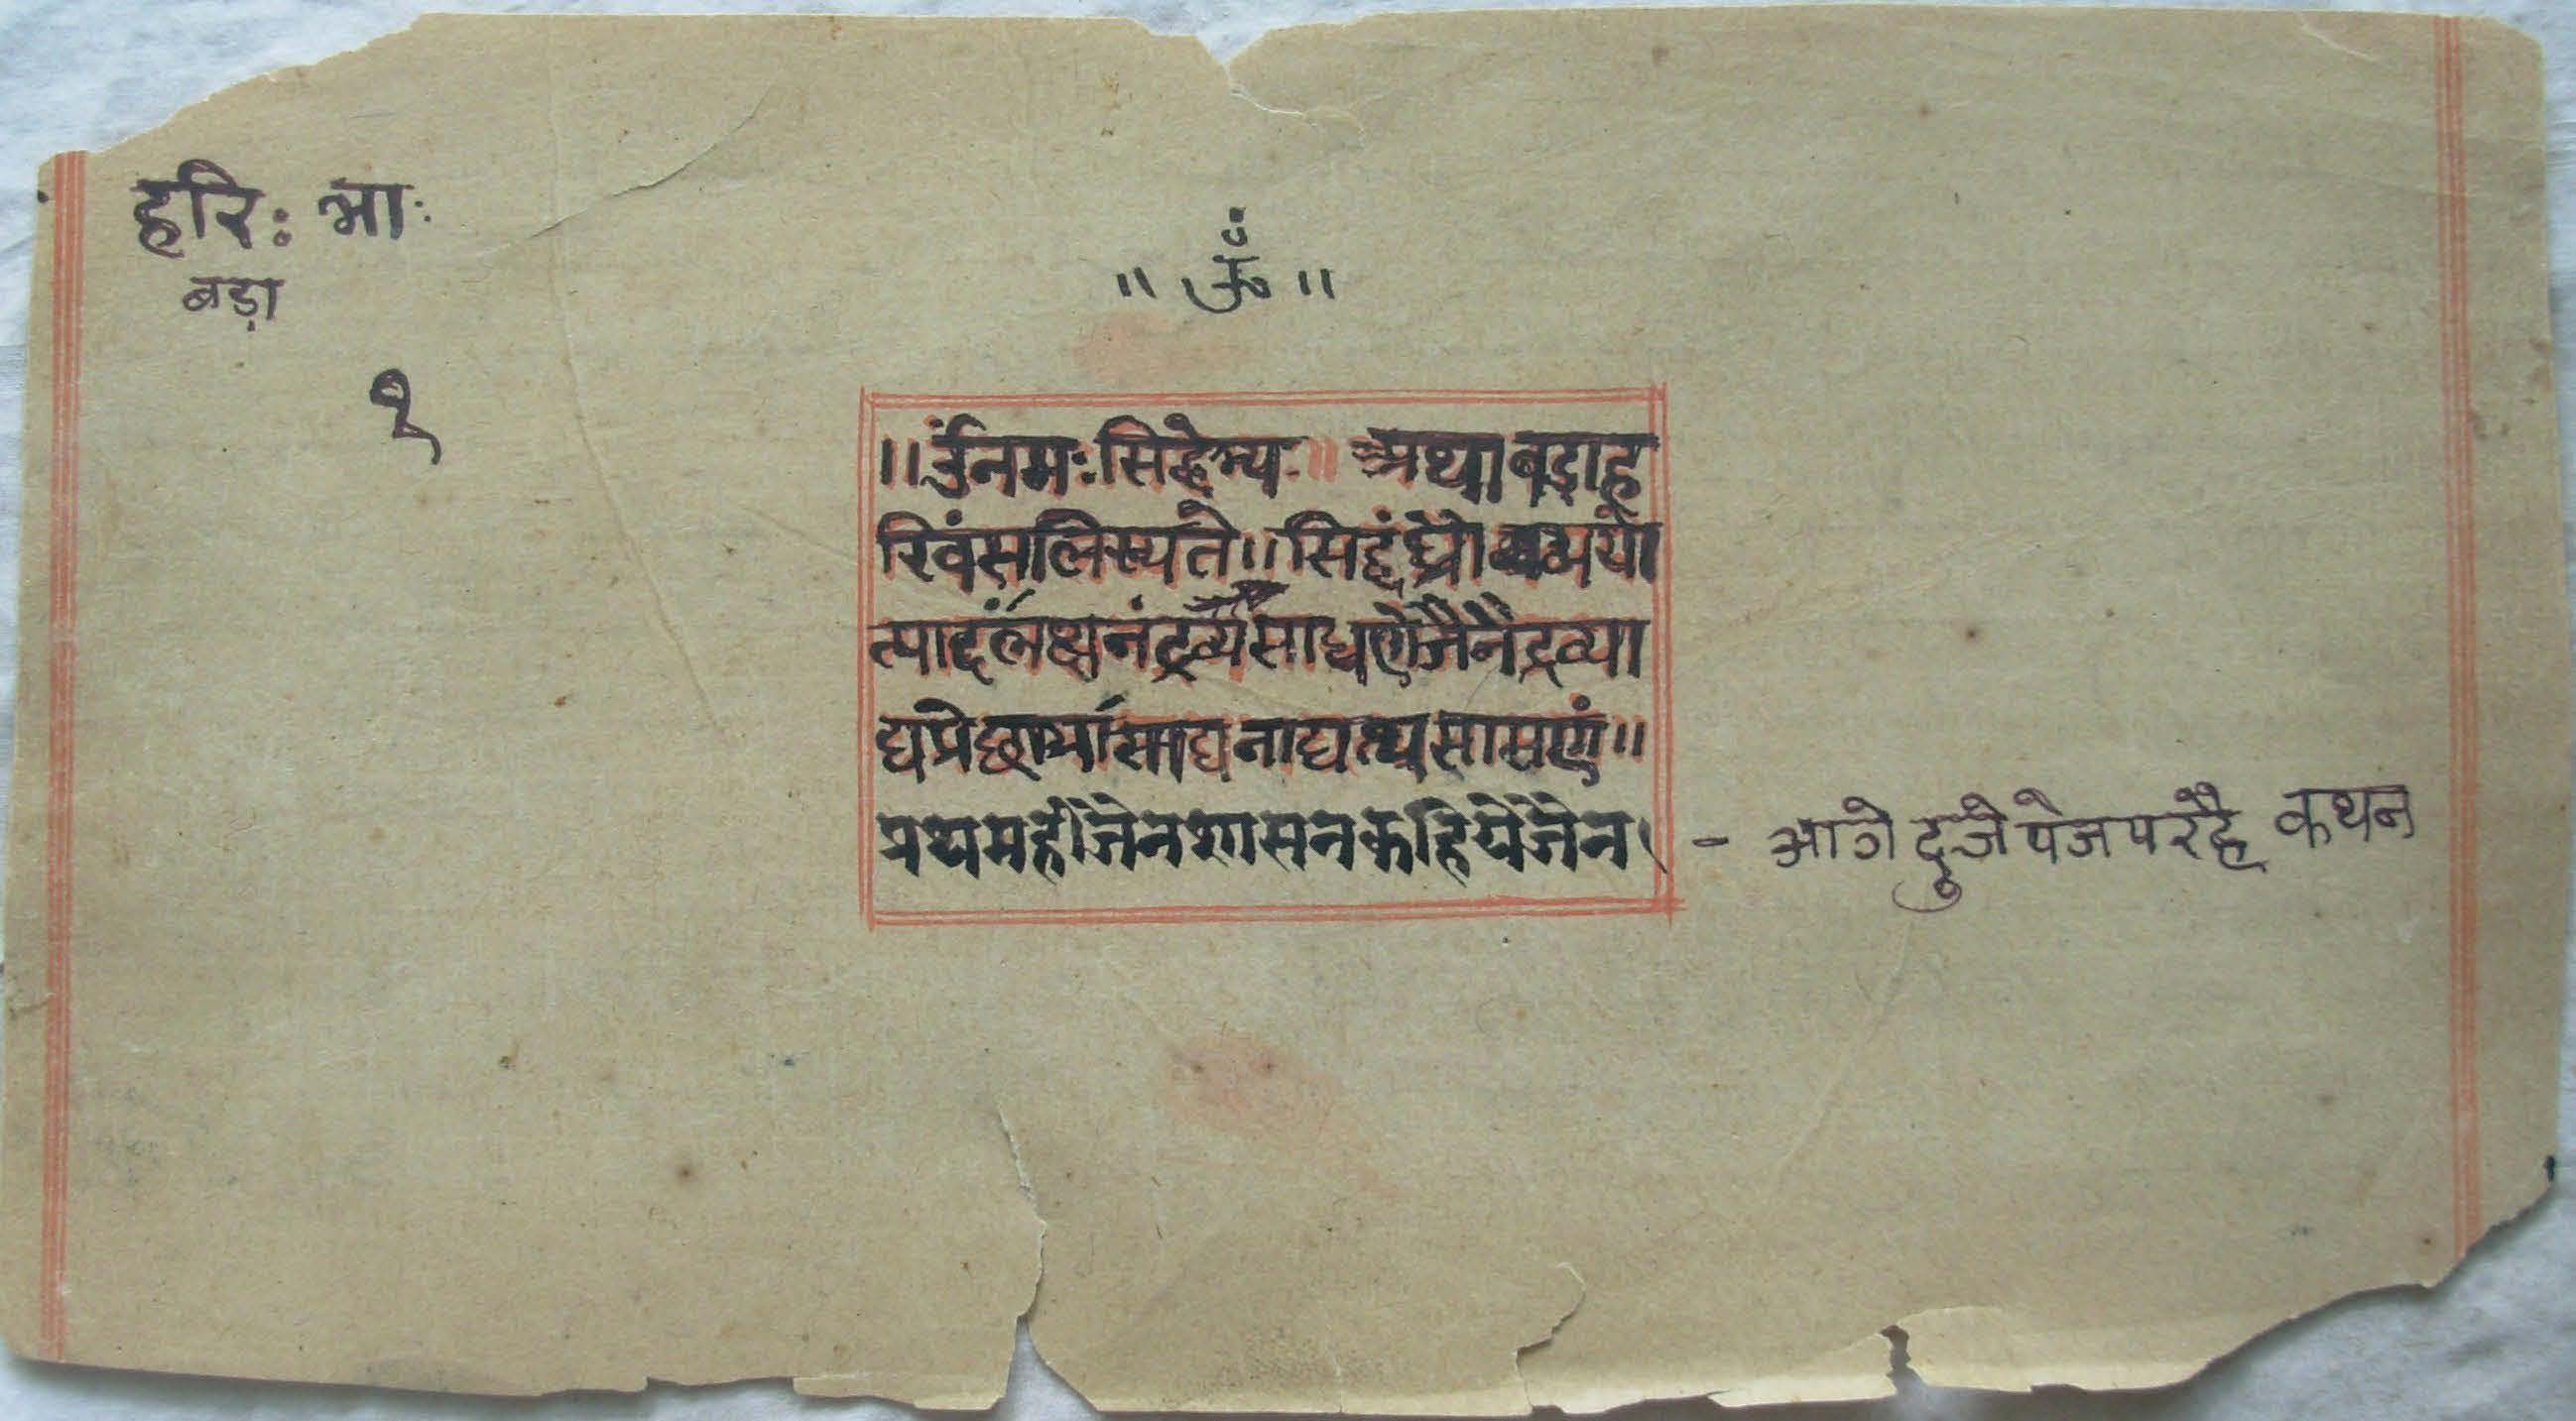 हरि: भा:
बड़ा
१
॥ ॐ ॥
॥ र्उंनमः सिद्धेभ्यः ॥ अथा बडाह
रिवंसलिख्यते ॥ सिद्दंध्रौव्यव्ययो
त्पाद्दंलक्षनंद्रव्यसाधणंजैनैद्रव्या
द्यप्रेक्षार्या साद्यनाद्यत्थसासणं ॥
प्रथमहीजैनशासनकहियेजैन
- आगे दुजे पेज पर है कथन